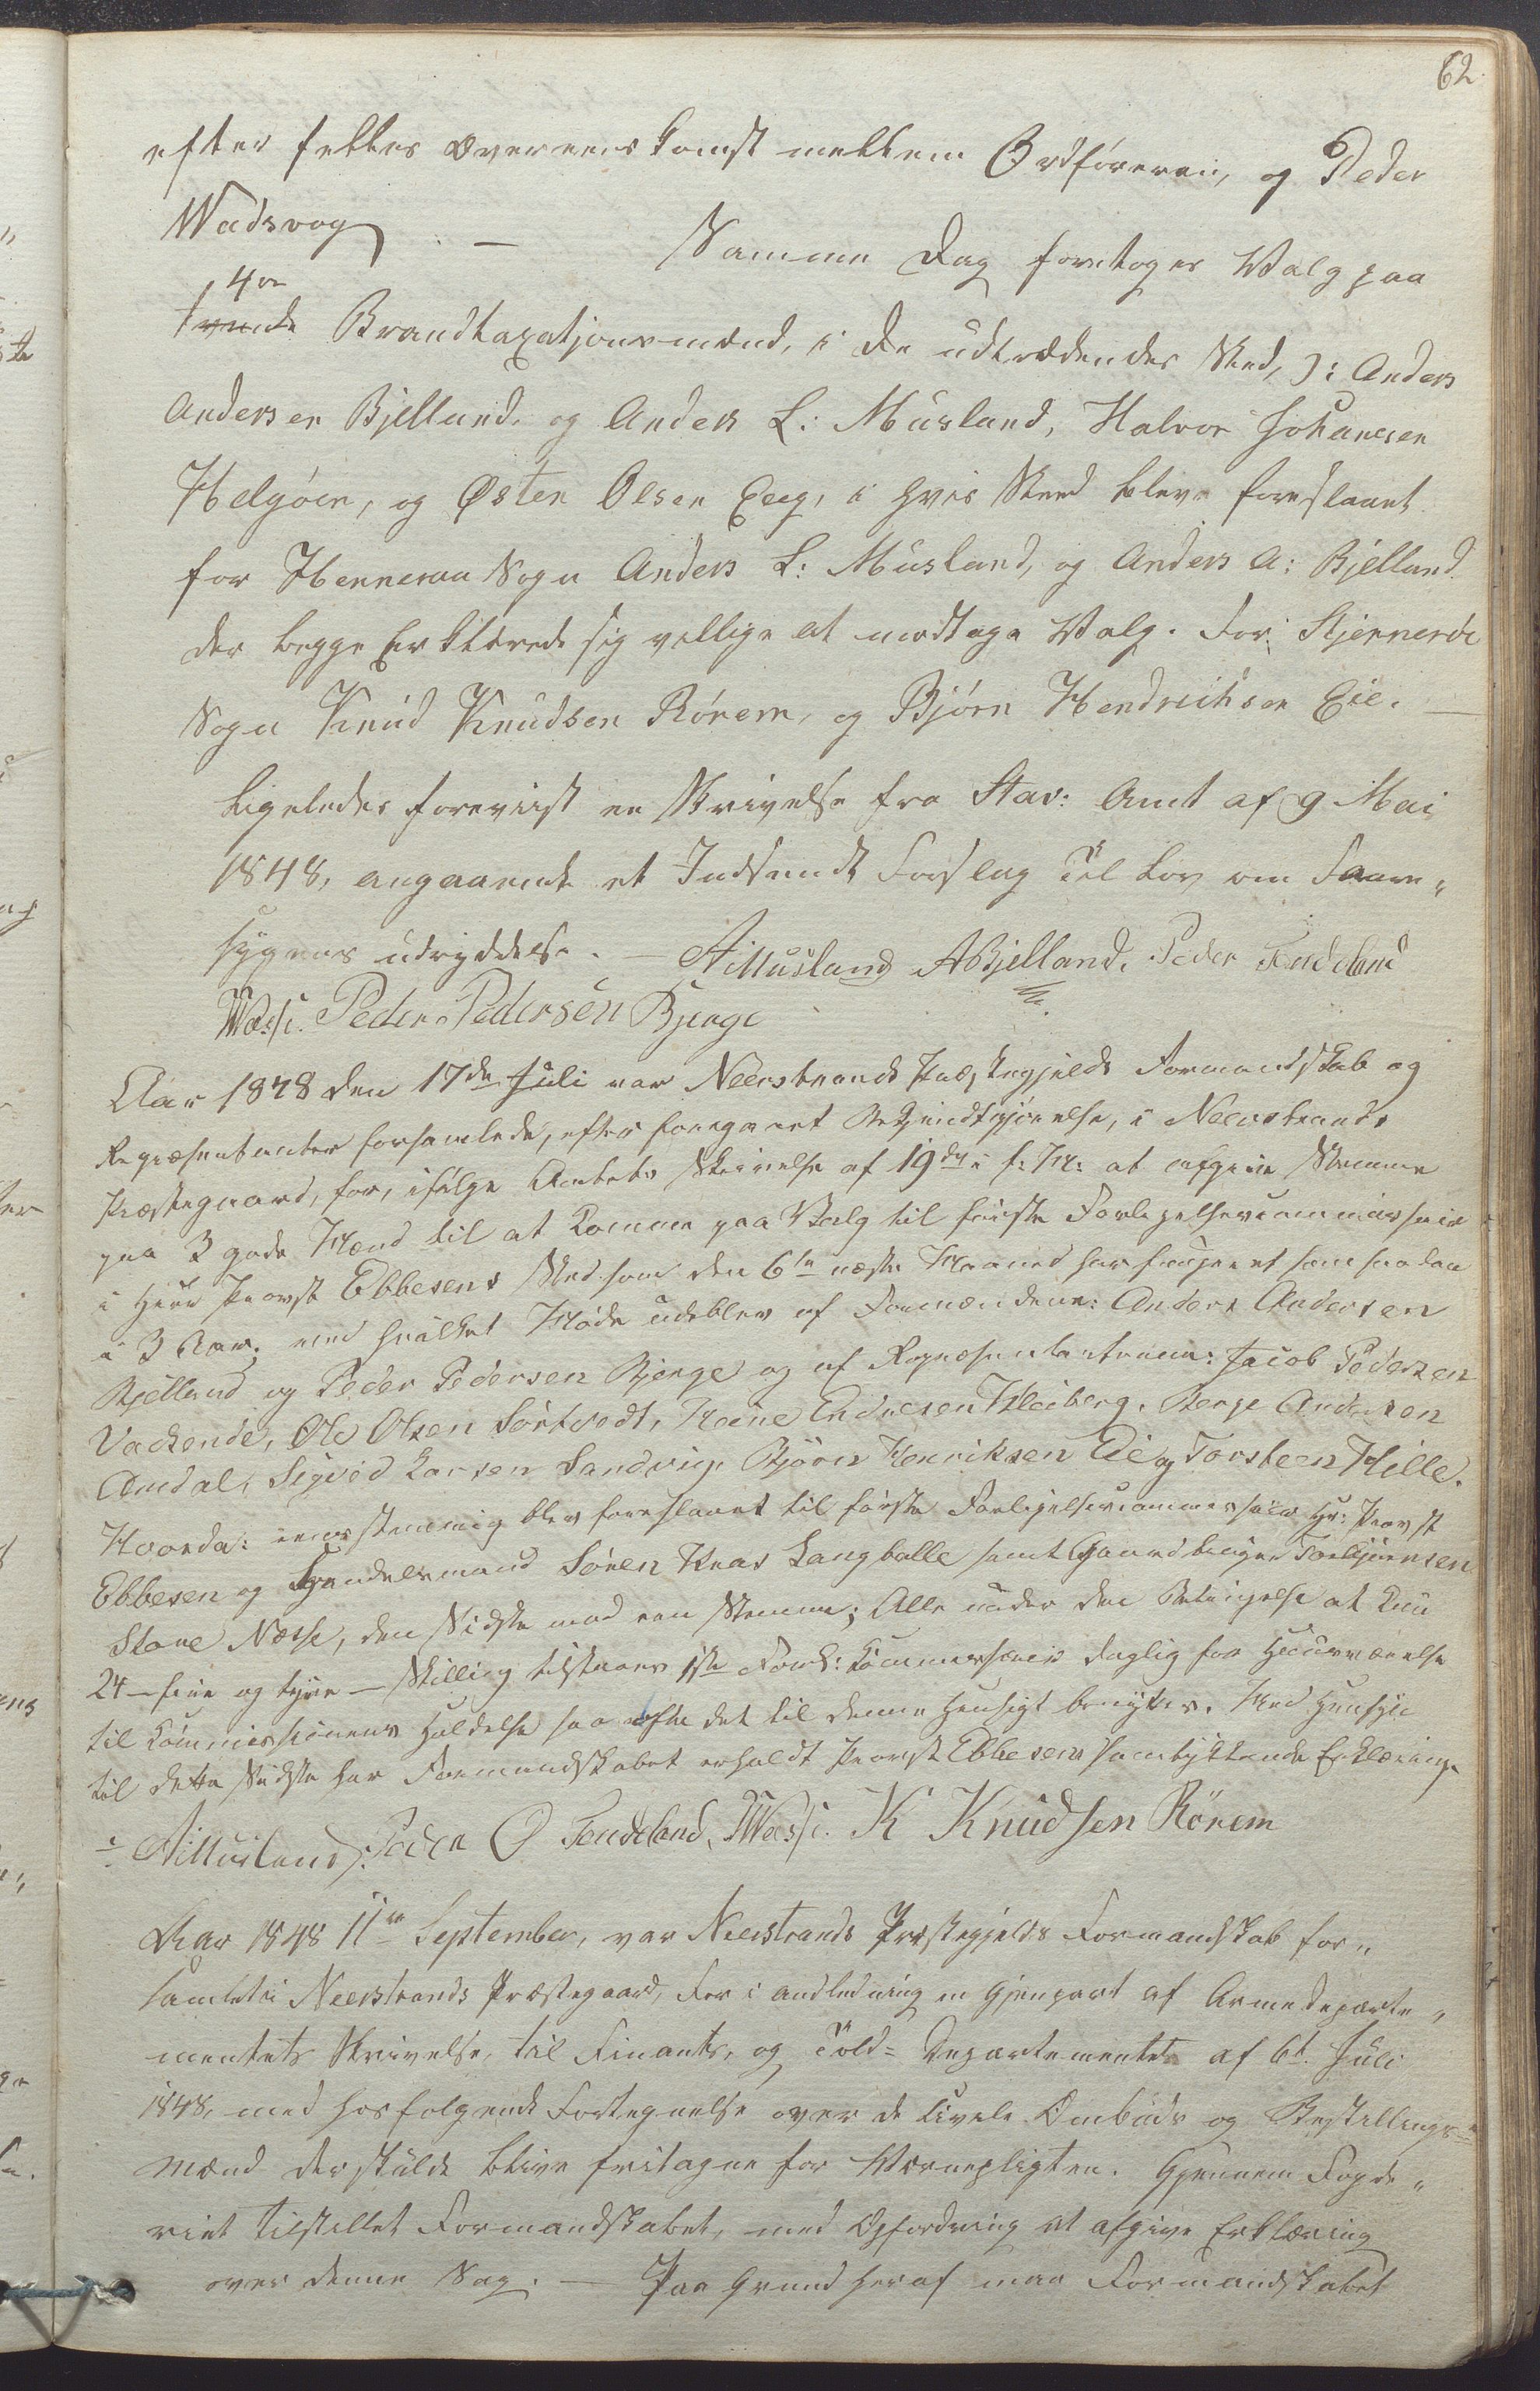 62.
efter felles Overeenskomst mellem Ordføreren, og Peder
Wadsvog — Samme Dag foretoges Valg paa
4re
tvende Brandtaxatjonsmænd, i de udtrædendes Sted, ɔ: Anders
Andersen Bjelland, og Anders L: Musland, Halvor Johanesen
Helgøen, og Østen Olsen Eeg, i hvis Sted bleve foreslaaet
for Henneraa Sogn Anders L: Musland, og Anders A: Bjelland
der begge Erklærede sig villige at modtage Valg. For Skjernerøe
Sogn Knud Knudsen Rørem, og Bjørn Hendrichsen Eie. —
Ligeledes foreviist en Skrivelse fra Stav: Amt af 9 Mai
1848, angaaende et Indsendt Forslag til Lov om Faare„
sygens udryddelse. — AMusland ABjelland, Peder Tendeland
Wasse. Peder Pedersen Bjerge
Aar 1848 den 17de Juli var Neerstrands Præstegjelds Formandskab og
Repræsentanter forsamlede, efter foregaaet Bekjendtgjørelse, i Neerstrands
Præstegaard, for, ifølge Amtets Skrivelse af 19de i f: M: at afgive Stemme
paa 3 gode Mænd til at komme paa Valg til første Forligelsescommissair
i Herr Provst Ebbesens Sted som den 6te næste Maaned har fungeret som saadan
i 3 Aar; ved hvilket Møde udeblev af Formændene: Anders Andersen
Bjelland og Peder Pedersen Bjerge og af Repræsentanterne: Jacob Pedersen
Vadsende, Ole Olsen Sørtvedt, Heine Endresen Kleiberg, Berge Andersen
Amdal, Sigvid Larsen Sandvig, Bjørn Henriksen Eie og Torsteen Hille.
Hvorda: eenstemmig blev foreslaaet til første Forligelsescommissair Hr: Provst
Ebbesen og Handelsmand Søren Knas Langballe samt Gaardbruger Torbjørnsen
Stove Næsse, den Sidste med een Stemme; Alle under den Betingelse at kun
24 – fire og tyve – Skilling tilstaaes 1ste Forl: Kommissair daglig for Huusværelse
til Kommissionens Holdelse saa ofte det til denne Hensigt benyttes. Med Hensyn
til dette Sidste har Formandskabet erholdt Provst Ebbesens samtykkende Erklæring.
AMusland, Peder O Tendeland, Wasse. K Knudsen Rörem
Aar 1848 11te September, var Neerstrands Præstegjelds Formandskab for„
samlet i Neerstrands Præstegaard, for i andledning en Gjenpart af Armedeparte„
mentets Skrivelse, til Finants, og Told= Departementet af 6t. Juli
1848, med hosfølgende Fortegnelse over de Civile Ombuds og Bestillings=
Mænd der skulde blive fritagne for Værnepligten. Gjennem Fogde„
riet tilstillet Formandskabet, med Opfordring at afgive Erklæring
over denne Sag. — Paa Grund heraf maa Formandskabet